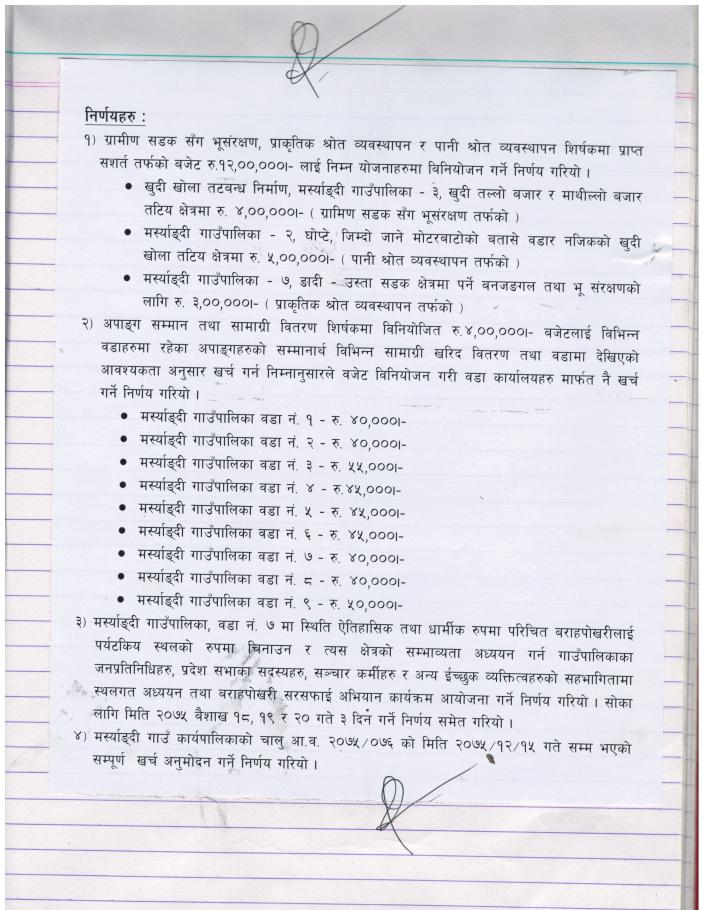 निर्णयहरु :
१) ग्रामीण सडक सँग भूसंरक्षण, प्राकृतिक श्रोत व्यवस्थापन र पानी श्रोत व्यवस्थापन शिर्षकमा प्राप्त
सशर्त तर्फको बजेट रु.१२,००,०००।- लाई निम्न योजनाहरुमा विनियोजन गर्ने निर्णय गरियो ।
• खुदी खोला तटबन्ध निर्माण, मर्स्याङ्दी गाउँपालिका - ३, खुदी तल्लो बजार र माथील्लो बजार
तटिय क्षेत्रमा रु. ४,००,०००।- ( ग्रामिण सडक सँग भूसंरक्षण तर्फको )
• मर्स्याङ्दी गाउँपालिका - २, घोप्टे, जिम्दो जाने मोटरबाटोको बतासे वडार नजिकको खुदी
खोला तटिय क्षेत्रमा रु. ५,००,०००।- ( पानी श्रोत व्यवस्थापन तर्फको )
• मर्स्याङ्दी गाउँपालिका - ७, डादी - उस्ता सडक क्षेत्रमा पर्ने बनजङगल तथा भू संरक्षणको
लागि रु. ३,००,०००।- ( प्राकृतिक श्रोत व्यवस्थापन तर्फको )
२) अपाङ्ग सम्मान तथा सामाग्री वितरण शिर्षकमा विनियोजित रु.४,००,०००।- बजेटलाई विभिन्न
वडाहरुमा रहेका अपाङ्गहरुको सम्मानार्थ विभिन्न सामाग्री खरिद वितरण तथा वडामा देखिएको
आवश्यकता अनुसार खर्च गर्न निम्नानुसारले वजेट विनियोजन गरी वडा कार्यालयहरु मार्फत नै खर्च
गर्ने निर्णय गरियो ।
• मर्स्याङ्दी गाउँपालिका वडा नं. १ - रु. ४०,०००।-
• मर्स्याङ्दी गाउँपालिका वडा नं. २ - रु. ४०,०००।-
• मर्स्याङ्दी गाउँपालिका वडा नं. ३ - रु. ५५,०००।-
• मर्स्याङ्दी गाउँपालिका वडा नं. ४ - रु.४५,०००।-
• मर्स्याङ्दी गाउँपालिका वडा नं. ५ - रु. ४५,०००।-
• मर्स्याङ्दी गाउँपालिका वडा नं. ६ - रु. ४५,०००।-
• मर्स्याङ्दी गाउँपालिका वडा नं. ७ - रु. ४०,०००।-
• मर्स्याङ्दी गाउँपालिका वडा नं. ८ - रु. ४०,०००।-
• मर्स्याङ्दी गाउँपालिका वडा नं. ९ - रु. ५०,०००।-
३) मर्स्याङ्दी गाउँपालिका, वडा नं. ७ मा स्थिति ऐतिहासिक तथा धार्मीक रुपमा परिचित बराहपोखरीलाई
पर्यटकिय स्थलको रुपमा चिनाउन र त्यस क्षेत्रको सम्भाव्यता अध्ययन गर्न गाउँपालिकाका
जनप्रतिनिधिहरु, प्रदेश सभाका सदस्यहरु, सञ्चार कर्मीहरु र अन्य ईच्छुक व्यक्तित्वहरुको सहभागितामा
स्थलगत अध्ययन तथा बराहपोखरी सरसफाई अभियान कार्यक्रम आयोजना गर्ने निर्णय गरियो । सोका
लागि मिति २०७५ वैशाख १८, १९ र २० गते ३ दिन गर्ने निर्णय समेत गरियो ।
४) मर्स्याङ्दी गाउँ कार्यपालिकाको चालु आ.व. २०७५/०७६ को मिति २०७५/१२/१५ गते सम्म भएको
सम्पूर्ण खर्च अनुमोदन गर्ने निर्णय गरियो ।